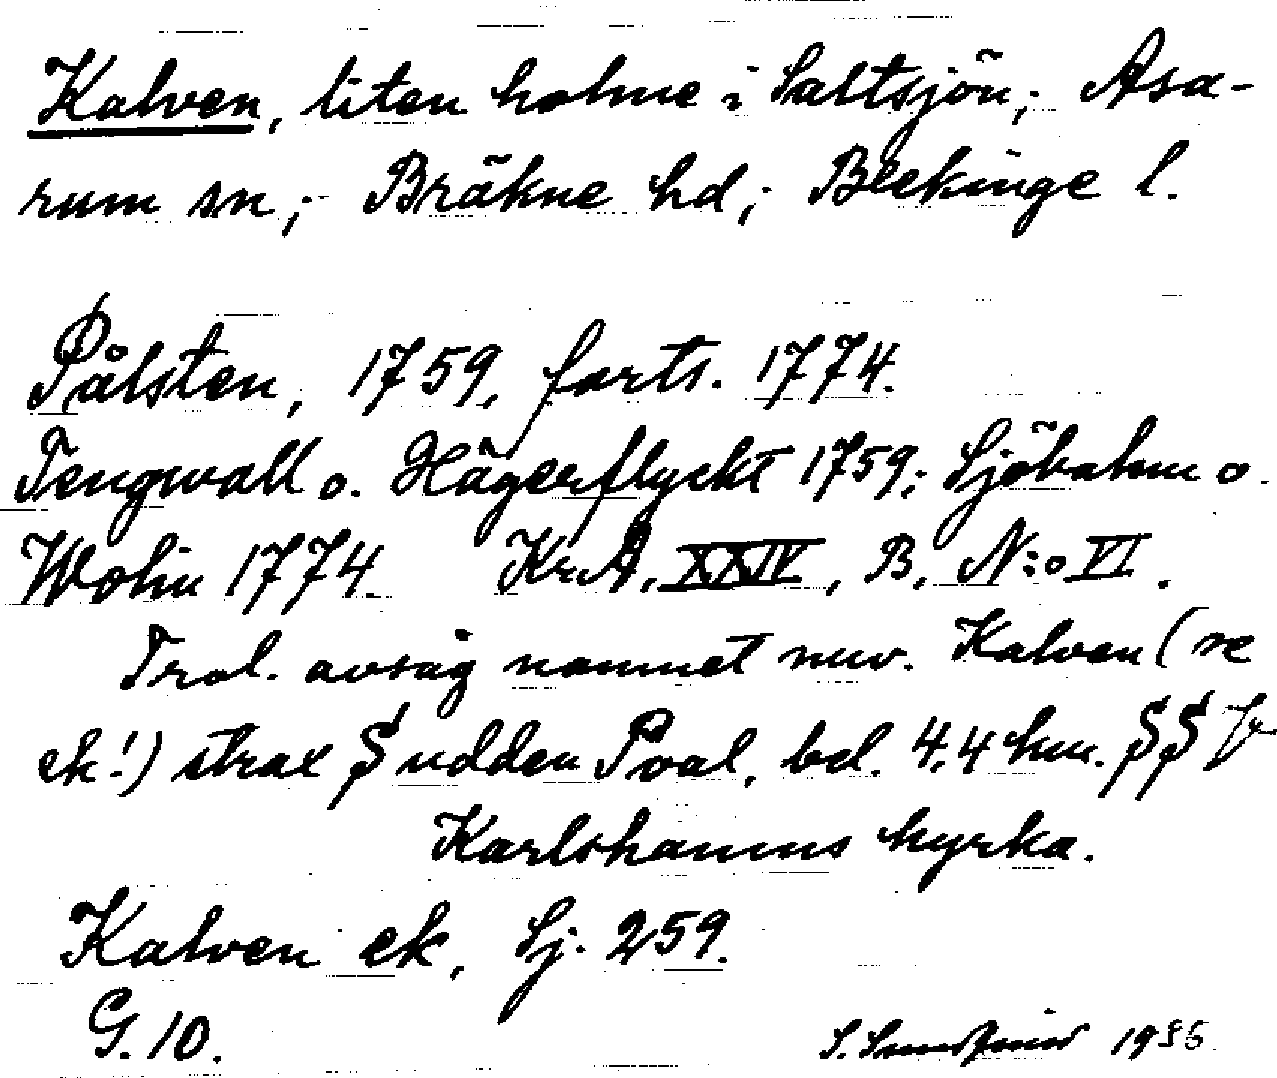 Kalven, liten holme i Saltsjön; Asa-
rum sn; Bräkne hd; Blekinge l.
Pålsten, 1759, forts. 1774.
Tengwall o. Hägerflyckt 1759; Sjöbohm o.
Wohin 1774. KrA, XXIV, B, N:o VI.
Trol. avsåg namnet nuv. Kalven (se
ek!) strax S udden Poal, bel. 4,4 km. SSV
Karlshamns kyrka.
Kalven ek, Sj. 259.
G. 10.
S. 19